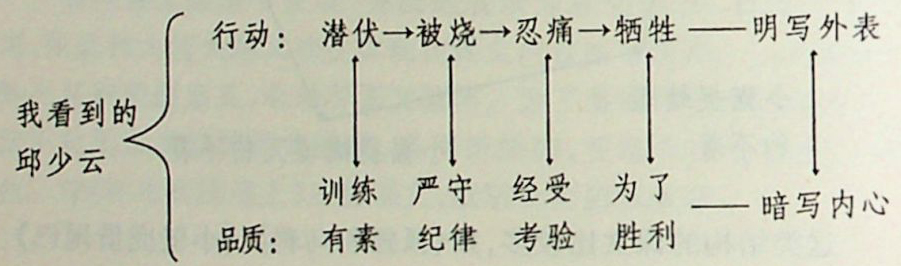 行动：潜伏→被烧→忍痛→牺牲——明写外表
我看到的
邱少云
训练 严守 经受 为了
——暗写内心
品质：有素 纪律 考验 胜利